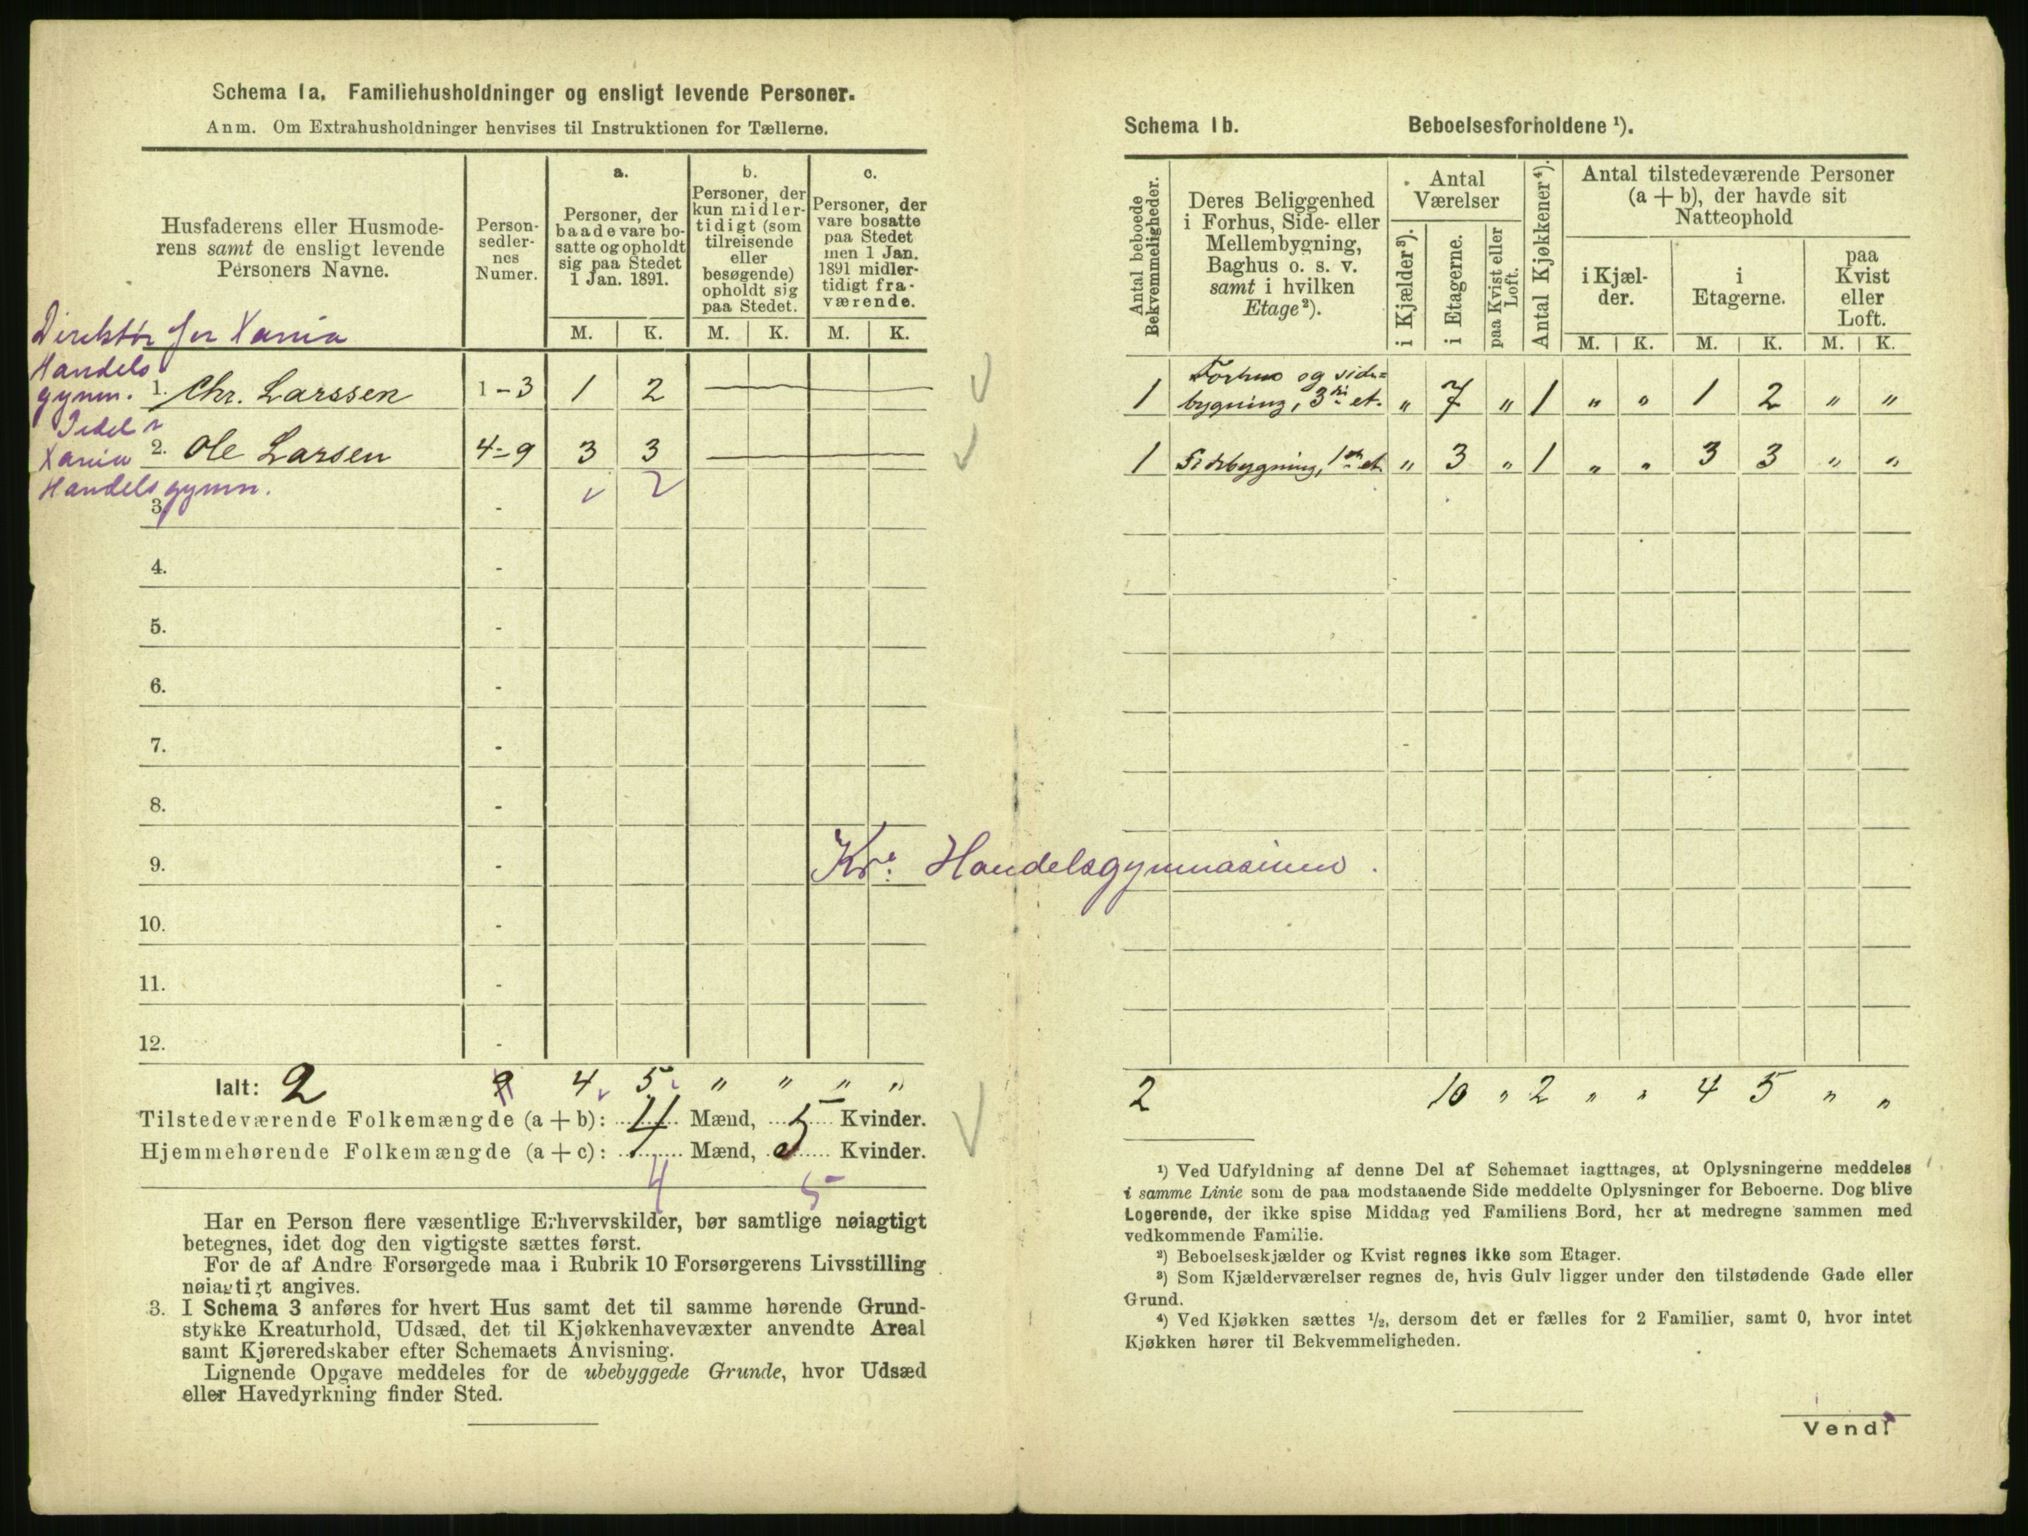 Schema 1a. Familiehusholdninger og ensligt levende Personer.
Anm. Om Extrahusholdninger henvises til Instruktionen for Tællerne.
Husfaderens eller Husmode-
rens samt de ensligt levende
Personers Navne.
Person-
sedler-
nes
Numer.
a.
Personer, der
baade vare bo-
satte og opholdt
sig paa Stedet
1 Jan. 1891.
b.
Personer, der
kun midler-
tidigt (som
tilreisende
eller
besøgende)
opholdt sig
paa Stedet.
c.
Personer, der
vare bosatte
paa Stedet
men 1 Jan.
1891 midler-
tidigt fra-
værende.
M. K. M. K. M. K.
Direktør for Xania
Handels
gymn. 1. Chr. Larssen 1-3 1 2
2. Ole Larsen 4-9 3 3
Xania
Handelsgymn.
3. - 2
4. -
5. -
6. -
7. -
8. -
9. -
Kr. Handelsgymnasium.
10. -
11. -
12. -
Ialt: 2 9 4 5 " " " "
Tilstedeværende Folkemængde (a + b): 4 Mænd, 5 Kvinder.
Hjemmehørende Folkemængde (a + c): Mænd, Kvinder.
4 5
Har en Person flere væsentlige Erhvervskilder, bør samtlige nøiagtigt
betegnes, idet dog den vigtigste sættes først.
For de af Andre Forsørgede maa i Rubrik 10 Forsørgerens Livsstilling
nøiagtigt angives.
3. I Schema 3 anføres for hvert Hus samt det til samme hørende Grund-
stykke Kreaturhold, Udsæd, det til Kjøkkenhavevæxter anvendte Areal
samt Kjøreredskaber efter Schemaets Anvisning.
Lignende Opgave meddeles for de ubebyggede Grunde, hvor Udsæd
eller Havedyrkning finder Sted.
Schema 1b. Beboelsesforholdene ¹).
Antal beboede
Bekvemmeligheder.
Deres Beliggenhed
i Forhus, Side- eller
Mellembygning,
Baghus o. s. v.
samt i hvilken
Etage²).
Antal
Værelser
i Kjælder³).
i Etagerne.
paa Kvist eller
Loft.
Antal Kjøkkener⁴).
Antal tilstedeværende Personer
(a + b), der havde sit
Natteophold
i Kjæl-
der.
i
Etagerne.
paa
Kvist
eller
Loft.
M. K. M. K. M. K.
Forhus og side=
1 bygning, 3die et. " 7 " 1 " " 1 2 " "
1 Sidebygning, 1ste et " 3 " 1 " " 3 3 " "
2 10 " 2 " " 4 5 " "
¹) Ved Udfyldning af denne Del af Schemaet iagttages, at Oplysningerne meddeles
i samme Linie som de paa modstaaende Side meddelte Oplysninger for Beboerne. Dog blive
Logerende, der ikke spise Middag ved Familiens Bord, her at medregne sammen med
vedkommende Familie.
²) Beboelseskjælder og Kvist regnes ikke som Etager.
³) Som Kjælderværelser regnes de, hvis Gulv ligger under den tilstødende Gade eller
Grund.
⁴) Ved Kjøkken sættes ½, dersom det er fælles for 2 Familier, samt 0, hvor intet
Kjøkken hører til Bekvemmeligheden.
Vend!